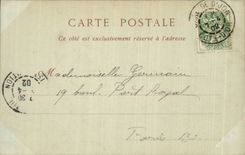 CARTE POSTALE
Ce côté est exclusivement réservé à l'adresse
Mademoiselle Germain
19 boul. Port Royal
Paris
02